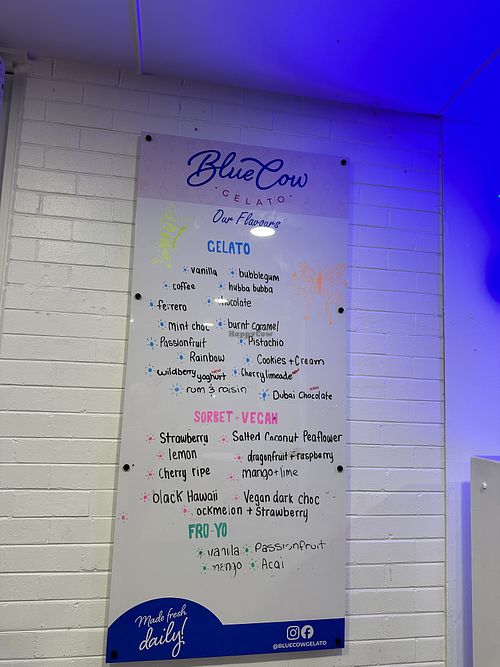 Blue Cow
GELATO
Our Flavours
GELATO
vanilla bubblegum
coffee hubba bubba
ferrero chocolate
mint choc burnt caramel
HappyCow
Passionfruit Pistachio
Rainbow Cookies + Cream
wildberry yoghurt new Cherry limeade new
rum & raisin Dubai Chocolate new
SORBET - VEGAN
Strawberry Salted Coconut Peaflower
lemon dragonfruit + raspberry
Cherry ripe mango + lime
black Hawaii Vegan dark choc
ockmelon + Strawberry
FRO-YO
vanila Passionfruit
mango Acai
Made fresh
daily!
@BLUECOWGELATO